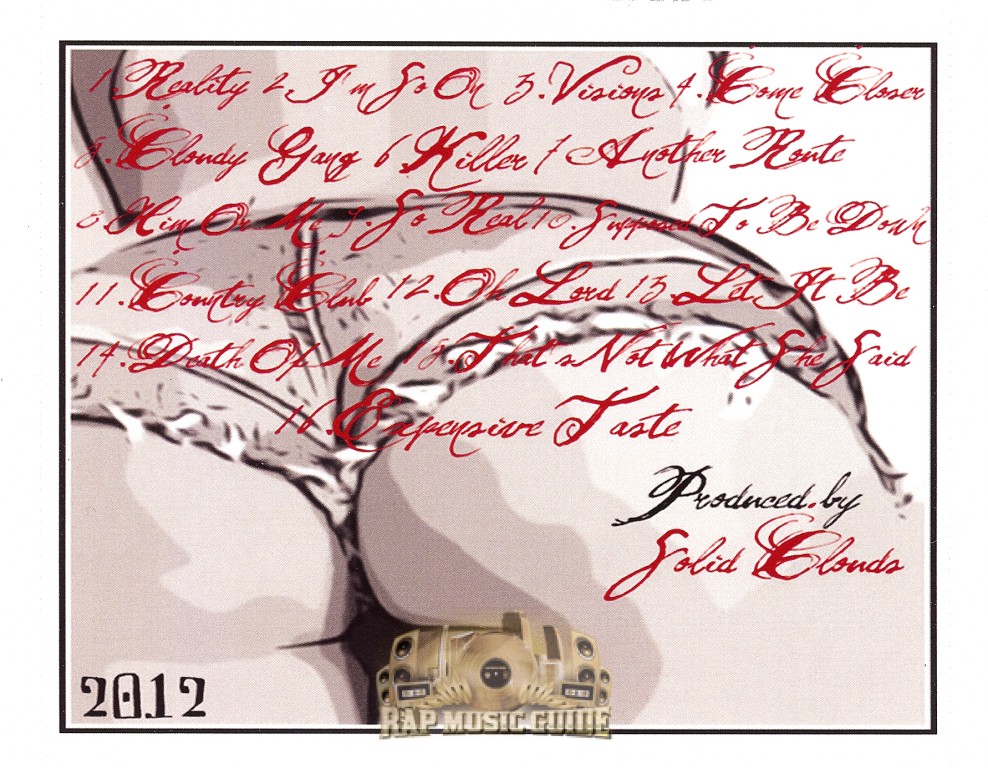 1. Reality 2. I'm So On 3. Visions 4. Come Closer
5. Cloudy Gang 6 Killer 7 Another Route
8. Him Or Me 9. So Real 10. Supposed To Be Down
11. Country Club 12. Oh Lord 13. Let It Be
14. Death Of Me 15. That's Not What She Said
16. Expensive Taste
Produced.by
Solid Clouds
2012
RAP MUSIC GUIDE